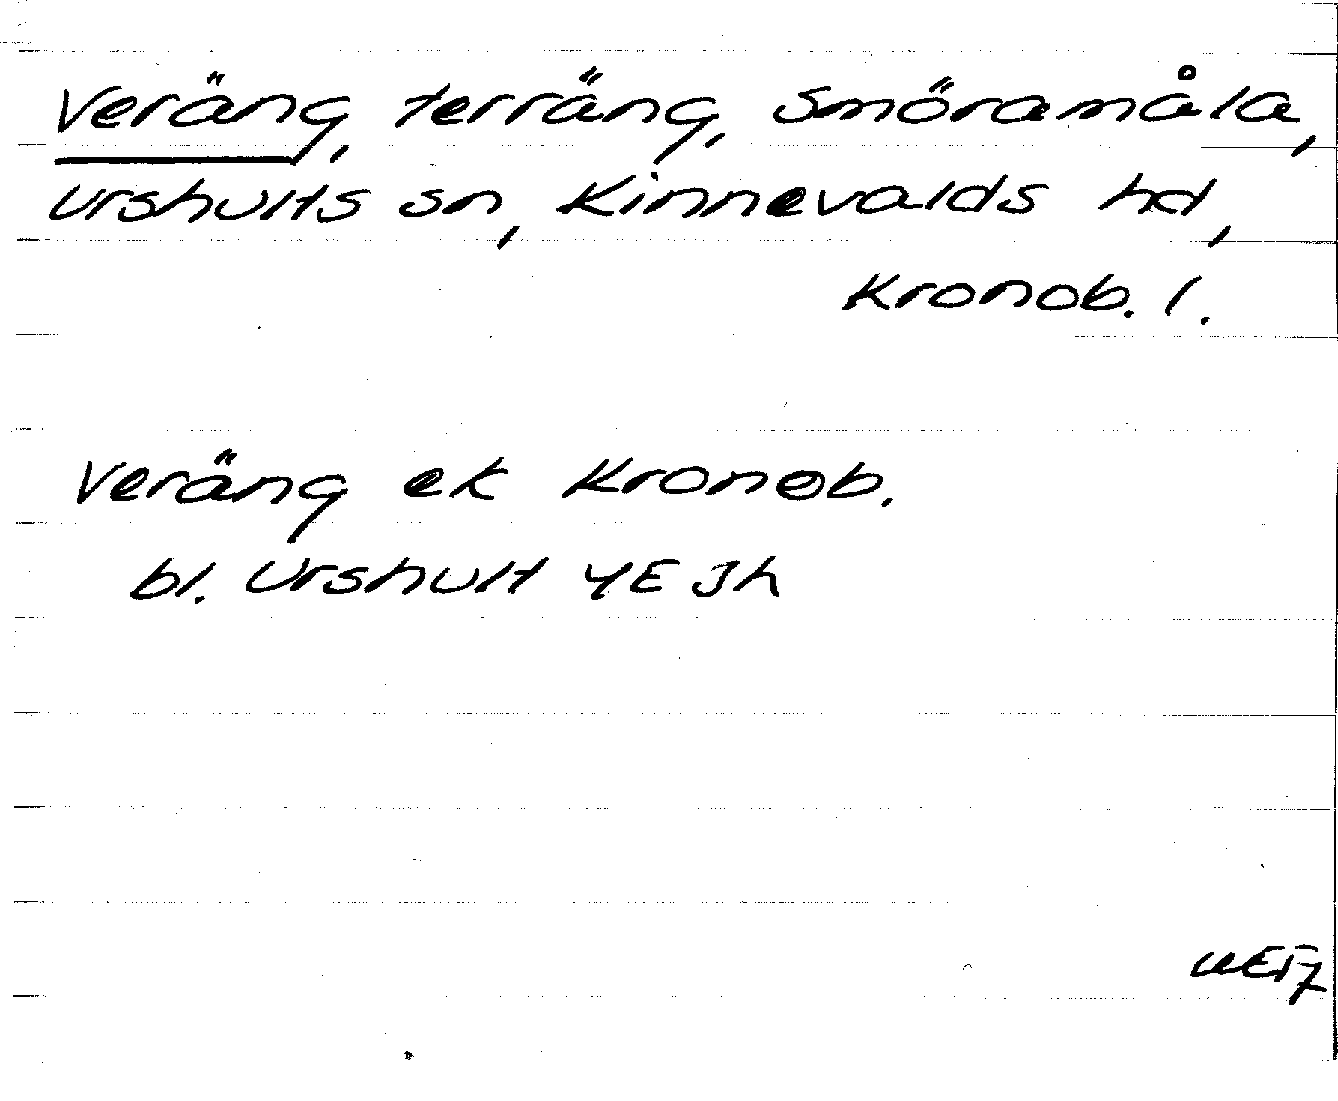 Veräng, terräng, Smöramåla,
Urshults sn, Kinnevalds hd,
Kronob. l.
Veräng ek Kronob.
bl. Urshult 4E Jh